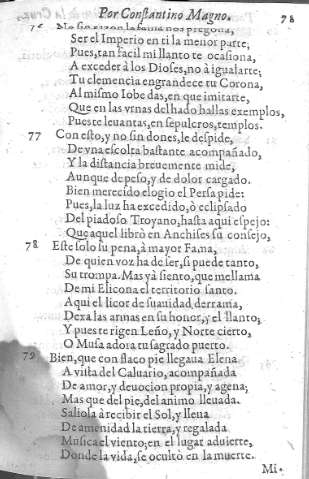 Por Constantino Magno. 78
76 No sin razon la fama nos pregona,
Ser el Imperio en ti la menor parte;
Pues, tan facil mi llanto te ocasiona,
A exceder à los Dioses, no à igualarte;
Tu clemencia engrandece tu Corona,
Al mismo Iobe das, en que imitarte,
Que en las vrnas del hado hallas exemplos,
Pues te leuantas, en sepulcros, templos.
77 Con esto, y no sin dones, le despide,
De vna escolta bastante acompañado,
Y la distancia breuemente mide,
Aunque de peso, y de dolor cargado.
Bien merecido elogio el Persa pide:
Pues, la luz ha excedido, ò eclipsado
Del piadoso Troyano, hasta aqui espejo:
Que aquel librò en Anchises su consejo,
78 Este solo su pena, à mayor Fama,
De quien voz ha de ser, si puede tanto,
Su trompa. Mas yà siento, que me llama
De mi Elicona el territorio santo.
Aqui el licor de suauidad derrama,
Dexa las armas en su honor, y el llanto,
Y pues te rigen Leño, y Norte cierto,
O Musa adora tu sagrado puerto.
79 Bien, que con flaco pie llegaua Elena
A vista del Caluario, acompañada
De amor, y deuocion propia, y agena;
Mas que del pie, del animo lleuada.
Saliola à recibir el Sol, y llena
De amenidad la tierra, y regalada
Musica el viento; en el lugar aduierte,
Donde la vida, se ocultò en la muerte.
Mi-